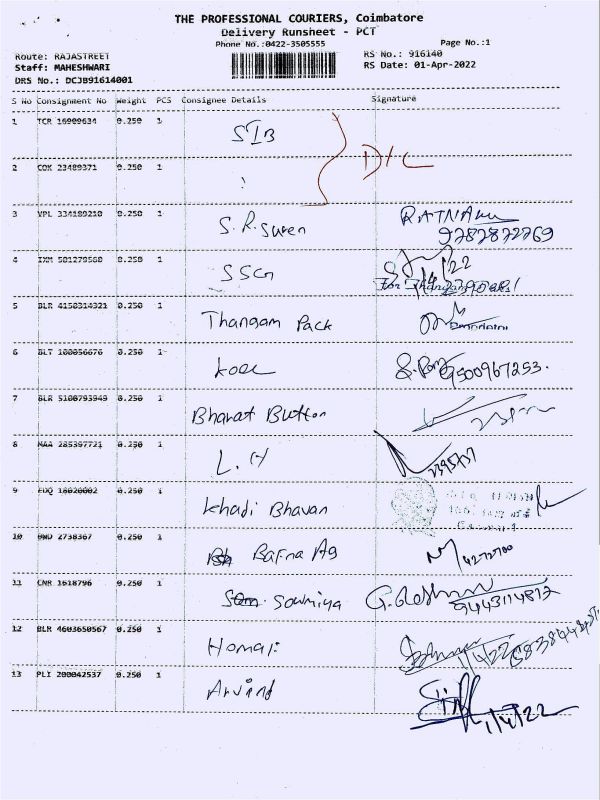 THE PROFESSIONAL COURIERS, Coimbatore
Delivery Runsheet - PCT
Phone No.:0422-3505555
Page No.:1
Route: RAJASTREET
RS No.: 916140
Staff: MAHESHWARI
RS Date: 01-Apr-2022
DRS No.: DCJB91614001
S No Consignment No Weight PCS Consignee Details Signature
1 TCR 16909634 0.250 1 SIB D/C
2 COK 23489371 0.250 1
3 VPL 334189210 0.250 1 S.R. Suren RATNA
9787872769
4 IXM 501279560 0.250 1 SSCn
5 BLR 4150314321 0.250 1 Thangam Pack
6 BLT 100056676 0.250 1 9500967253.
7 BLR 5100793949 0.250 1 Bharat Button
8 MAA 285397721 0.250 1 L.H
9 EDQ 16020002 0.250 1 Khadi Bhavan
10 BWD 2738367 0.250 1 Bafna Ag
11 CNR 1618796 0.250 1 Sowmiya
9443114812
12 BLR 4603650567 0.250 1 1/4/22
13 PLI 200042537 0.250 1 Arvind
1/4/22